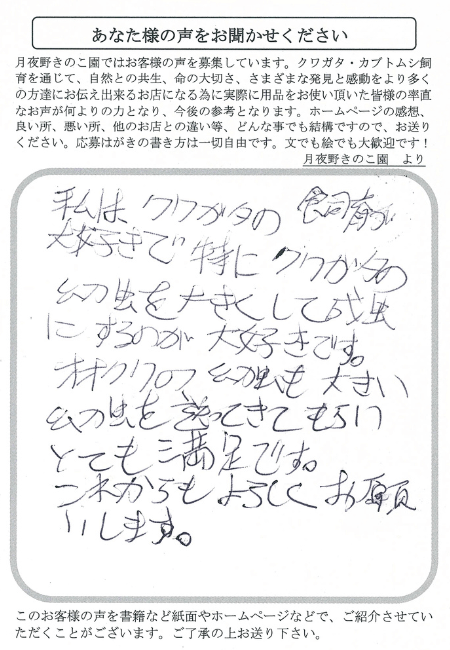 あなた様の声をお聞かせください
月夜野きのこ園ではお客様の声を募集しています。クワガタ・カブトムシ飼
育を通じて、自然との共生、命の大切さ、さまざまな発見と感動をより多く
の方達にお伝え出来るお店になる為に実際に用品をお使い頂いた皆様の率直
なお声が何よりの力となり、今後の参考となります。ホームページの感想、
良い所、悪い所、他のお店との違い等、どんな事でも結構ですので、お送り
ください。応募はがきの書き方は一切自由です。文でも絵でも大歓迎です！
月夜野きのこ園　より
私は クワガタの 飼育が
大好きで 特に クワガタの
幼虫を大きくして成虫
にするのが 大好きです。
オオクワの 幼虫も 大きい
幼虫を送ってきてもらい
とても満足です。
これからもよろしくお願
いします。
このお客様の声を書籍など紙面やホームページなどで、ご紹介させてい
ただくことがございます。ご了承の上お送り下さい。